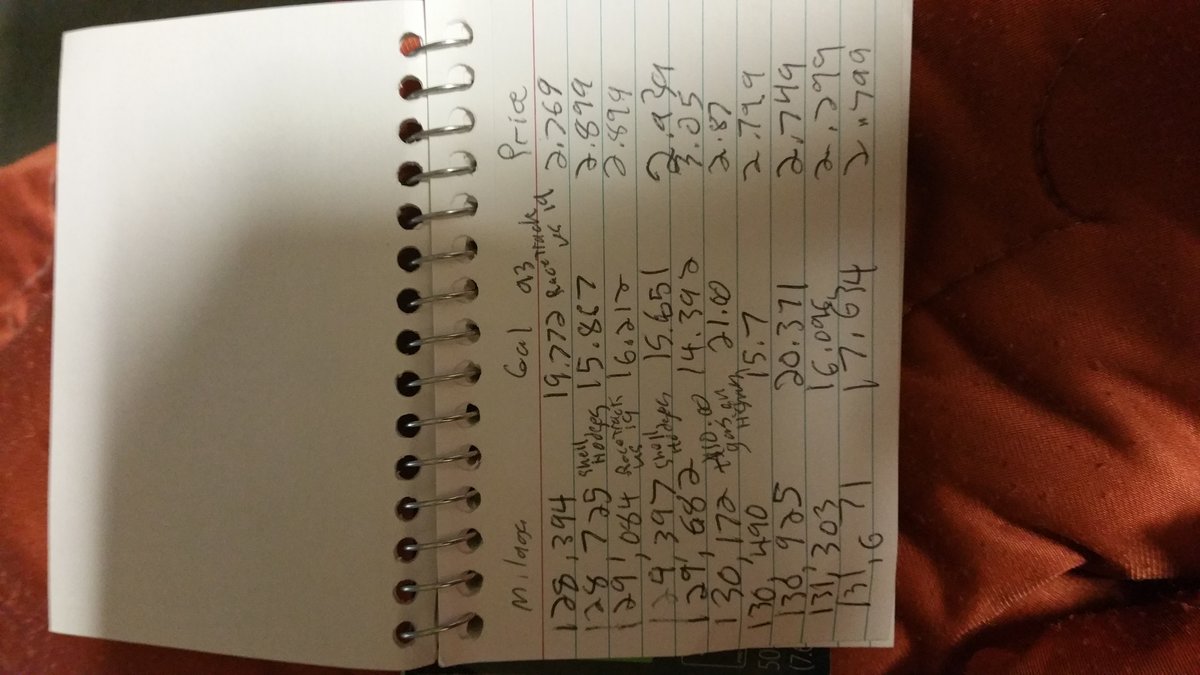 Milage Gal 93 Price
128,394 19.772 Racetrack US 19 2.769
128,725 Shell Hodges 15.867 2.899
129,084 Racetrack US 19 16.212 2.899
129,397 Shell Hodges 15.651 2.939
129,682 14.392 3.05
130,172 + $10.00 gas on Highway 21.00 2.87
130,490 15.7 2.799
130,925 20.371 2.749
131,303 16.096 2.799
131,671 17.634 2.799
50
(7.